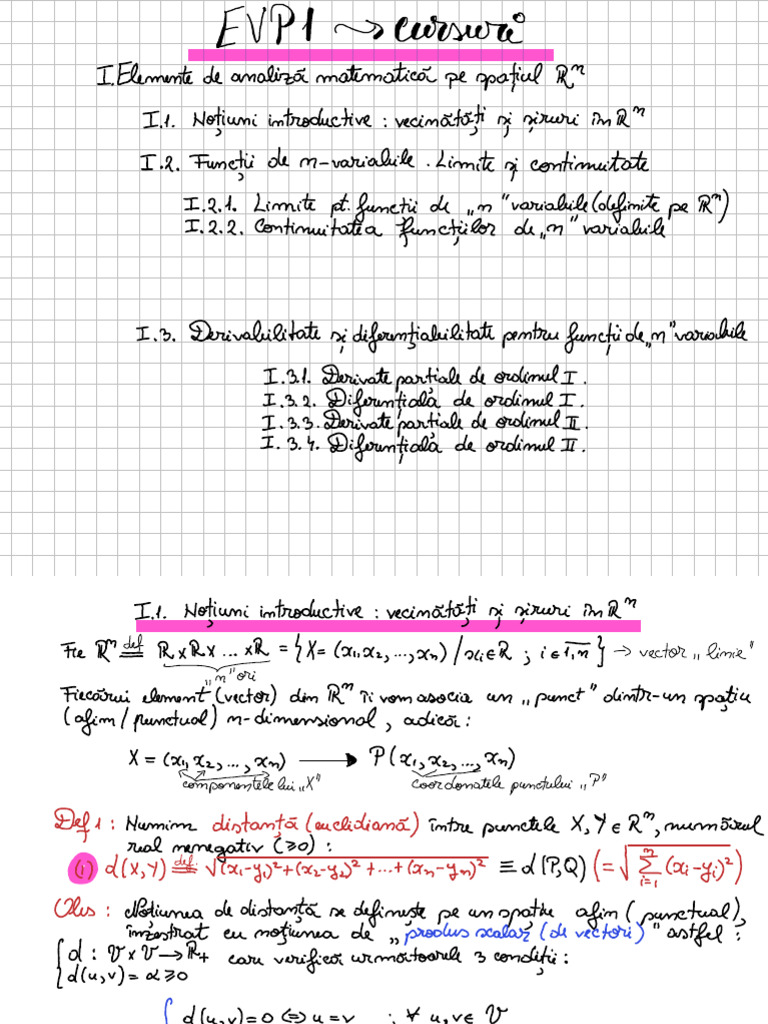 EVP1 ⇝ cursuri
I. Elemente de analiză matematică pe spațiul ℝⁿ
I.1. Noțiuni introductive : vecinătăți și șiruri în ℝⁿ
I.2. Funcții de n-variabile. Limite și continuitate
I.2.1. Limite pt. funcții de „n" variabile (definite pe ℝⁿ)
I.2.2. Continuitatea funcțiilor de „n" variabile
I.3. Derivabilitate și diferențiabilitate pentru funcții de „n" variabile
I.3.1. Derivate parțiale de ordinul I.
I.3.2. Diferențială de ordinul I.
I.3.3. Derivate parțiale de ordinul II.
I.3.4. Diferențială de ordinul II.
I.1. Noțiuni introductive : vecinătăți și șiruri în ℝⁿ
Fie ℝⁿ ≝ ℝ×ℝ×...×ℝ = {X = (x₁,x₂,...,xₙ) / xᵢ∈ℝ ; i∈1,n} → vector „linie"
„n" ori
Fiecărui element (vector) din ℝⁿ îi vom asocia un „punct" dintr-un spațiu
(afim / punctual) n-dimensional, adică :
X = (x₁, x₂, ..., xₙ) → P(x₁, x₂, ..., xₙ)
componentele lui „X" coordonatele punctului „P"
Def 1 : Numim distanță (euclidiană) între punctele X, Y ∈ ℝⁿ, numărul
real nenegativ (≥0) :
(1) d(X,Y) ≝ √((x₁-y₁)²+(x₂-y₂)²+...+(xₙ-yₙ)²) ≡ d(P,Q) (= √(∑ᵢ₌₁ⁿ (xᵢ-yᵢ)²))
Obs : Noțiunea de distanță se definește pe un spațiu afim (punctual),
înzestrat cu noțiunea de „produs scalar (de vectori)" astfel :
{ d : V×V → ℝ₊ care verifică următoarele 3 condiții :
d(u,v) = α ≥ 0
{ d(u,v)=0 ⇔ u=v ; ∀ u,v∈V